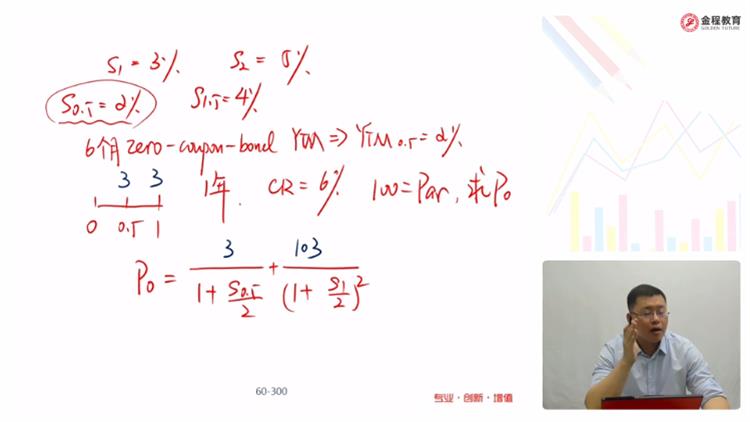 金程教育
GOLDEN FUTURE
S₁ = 3% S₂ = 5%
S₀.₅ = 2% S₁.₅ = 4%
6个月 zero-coupon-bond YTM ⇒ YTM₀.₅ = 2%
3 3 1年. CR = 6% 100 = Par, 求P₀
0 0.5 1
3 103
P₀ = ――― + ―――
1 + S₀.₅/2 (1 + S₁/2)²
60-300
专业·创新·增值